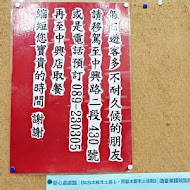 假日遊客多不耐久候的朋友
請移駕至中興路二段430號
或是電話預訂089-230305
再至中興店取餐
縮短您寶貴的時間 謝謝